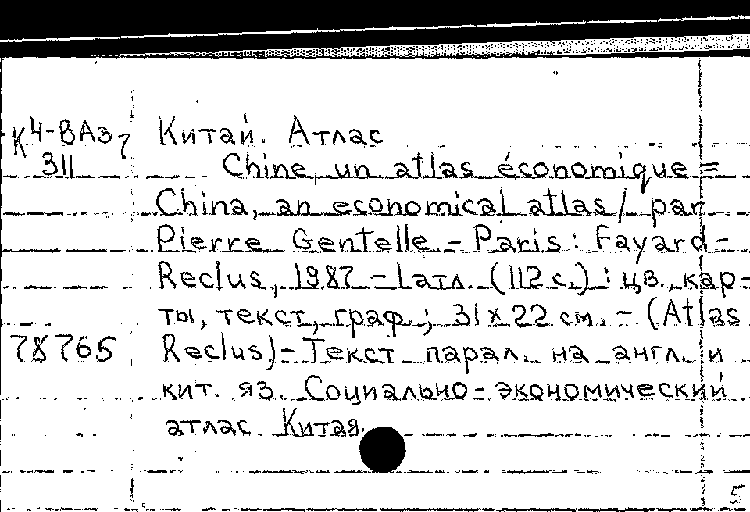 К4-8Аз7 Китай. Атлас
311 Chine, un atlas économique =
China, an economical atlas / par
Pierre Gentelle - Paris: Fayard -
Reclus, 1987 - 1атл. (112 с.) : цв. кар-
ты, текст, граф.; 31х22 см. - (Atlas
78765 Reclus) - Текст парал. на англ. и
кит. яз. Социально-экономический
атлас Китая.
5